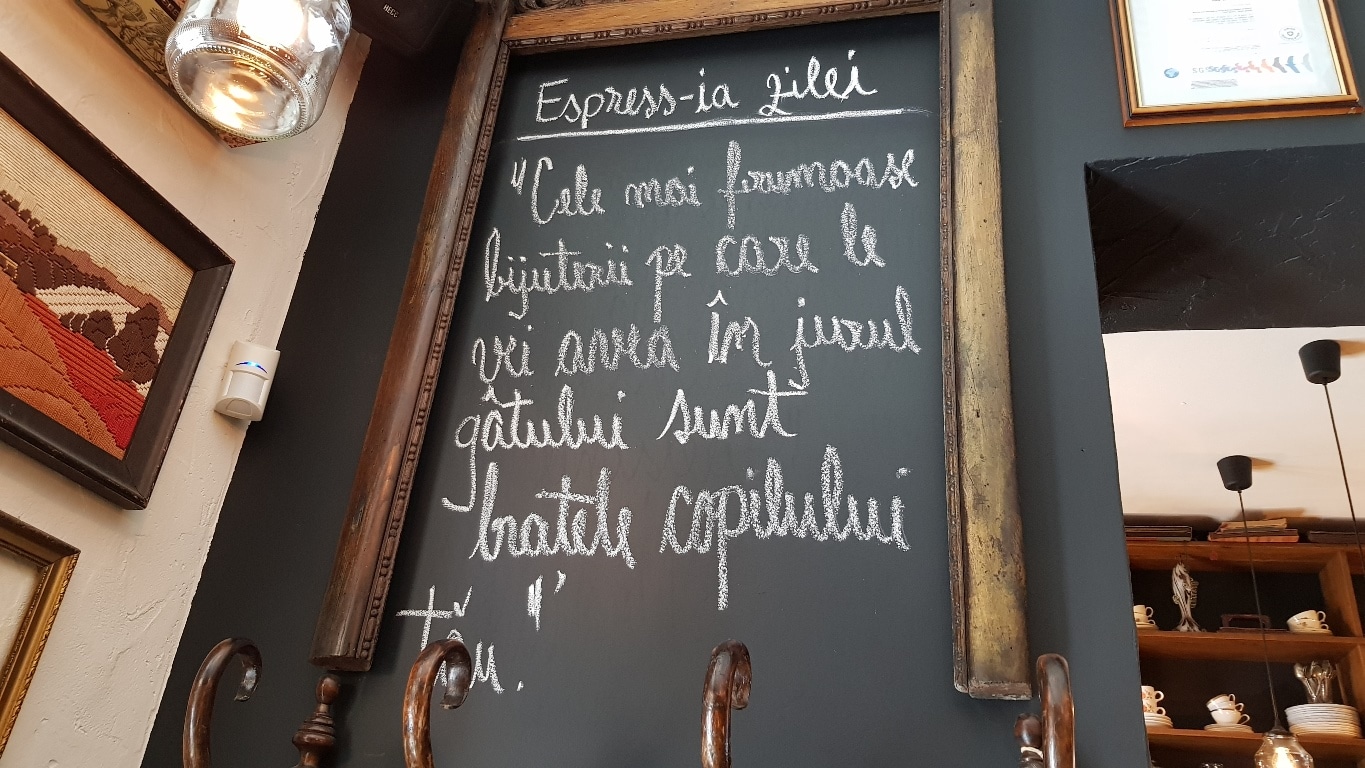 HECO
Espress-ia zilei
"Cele mai frumoase
bijuterii pe care le
vei avea în jurul
gâtului sunt
bratele copilului
tău."
SGS